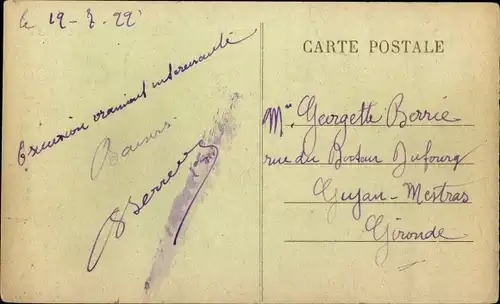 le 19-7-22
Excursion vraiment intéressante
Baisers
CARTE POSTALE
Mlle Georgette Berrié
rue du Docteur Dufourg
Gujan-Mestras
Gironde